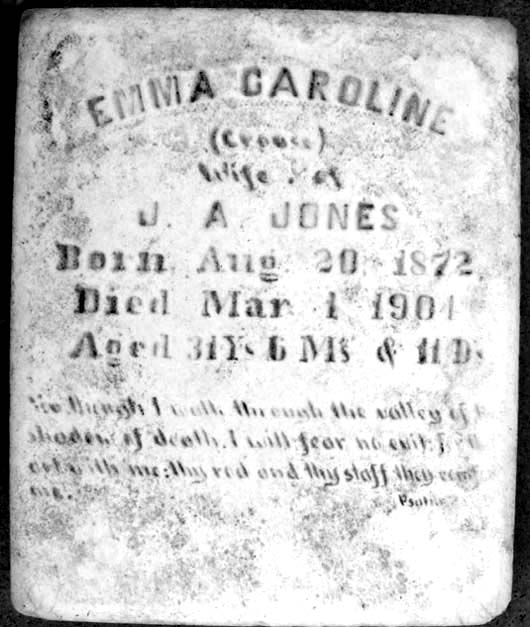 EMMA CAROLINE
(Crouse)
Wife of
J. A JONES
Born Aug 20 1872
Died Mar 1 1904
Aged 31Ys 6 Ms & 11 Ds
though I walk through the valley of
shadow of death, I will fear no evil:
art with me: thy rod and thy staff they
me.
Psalm